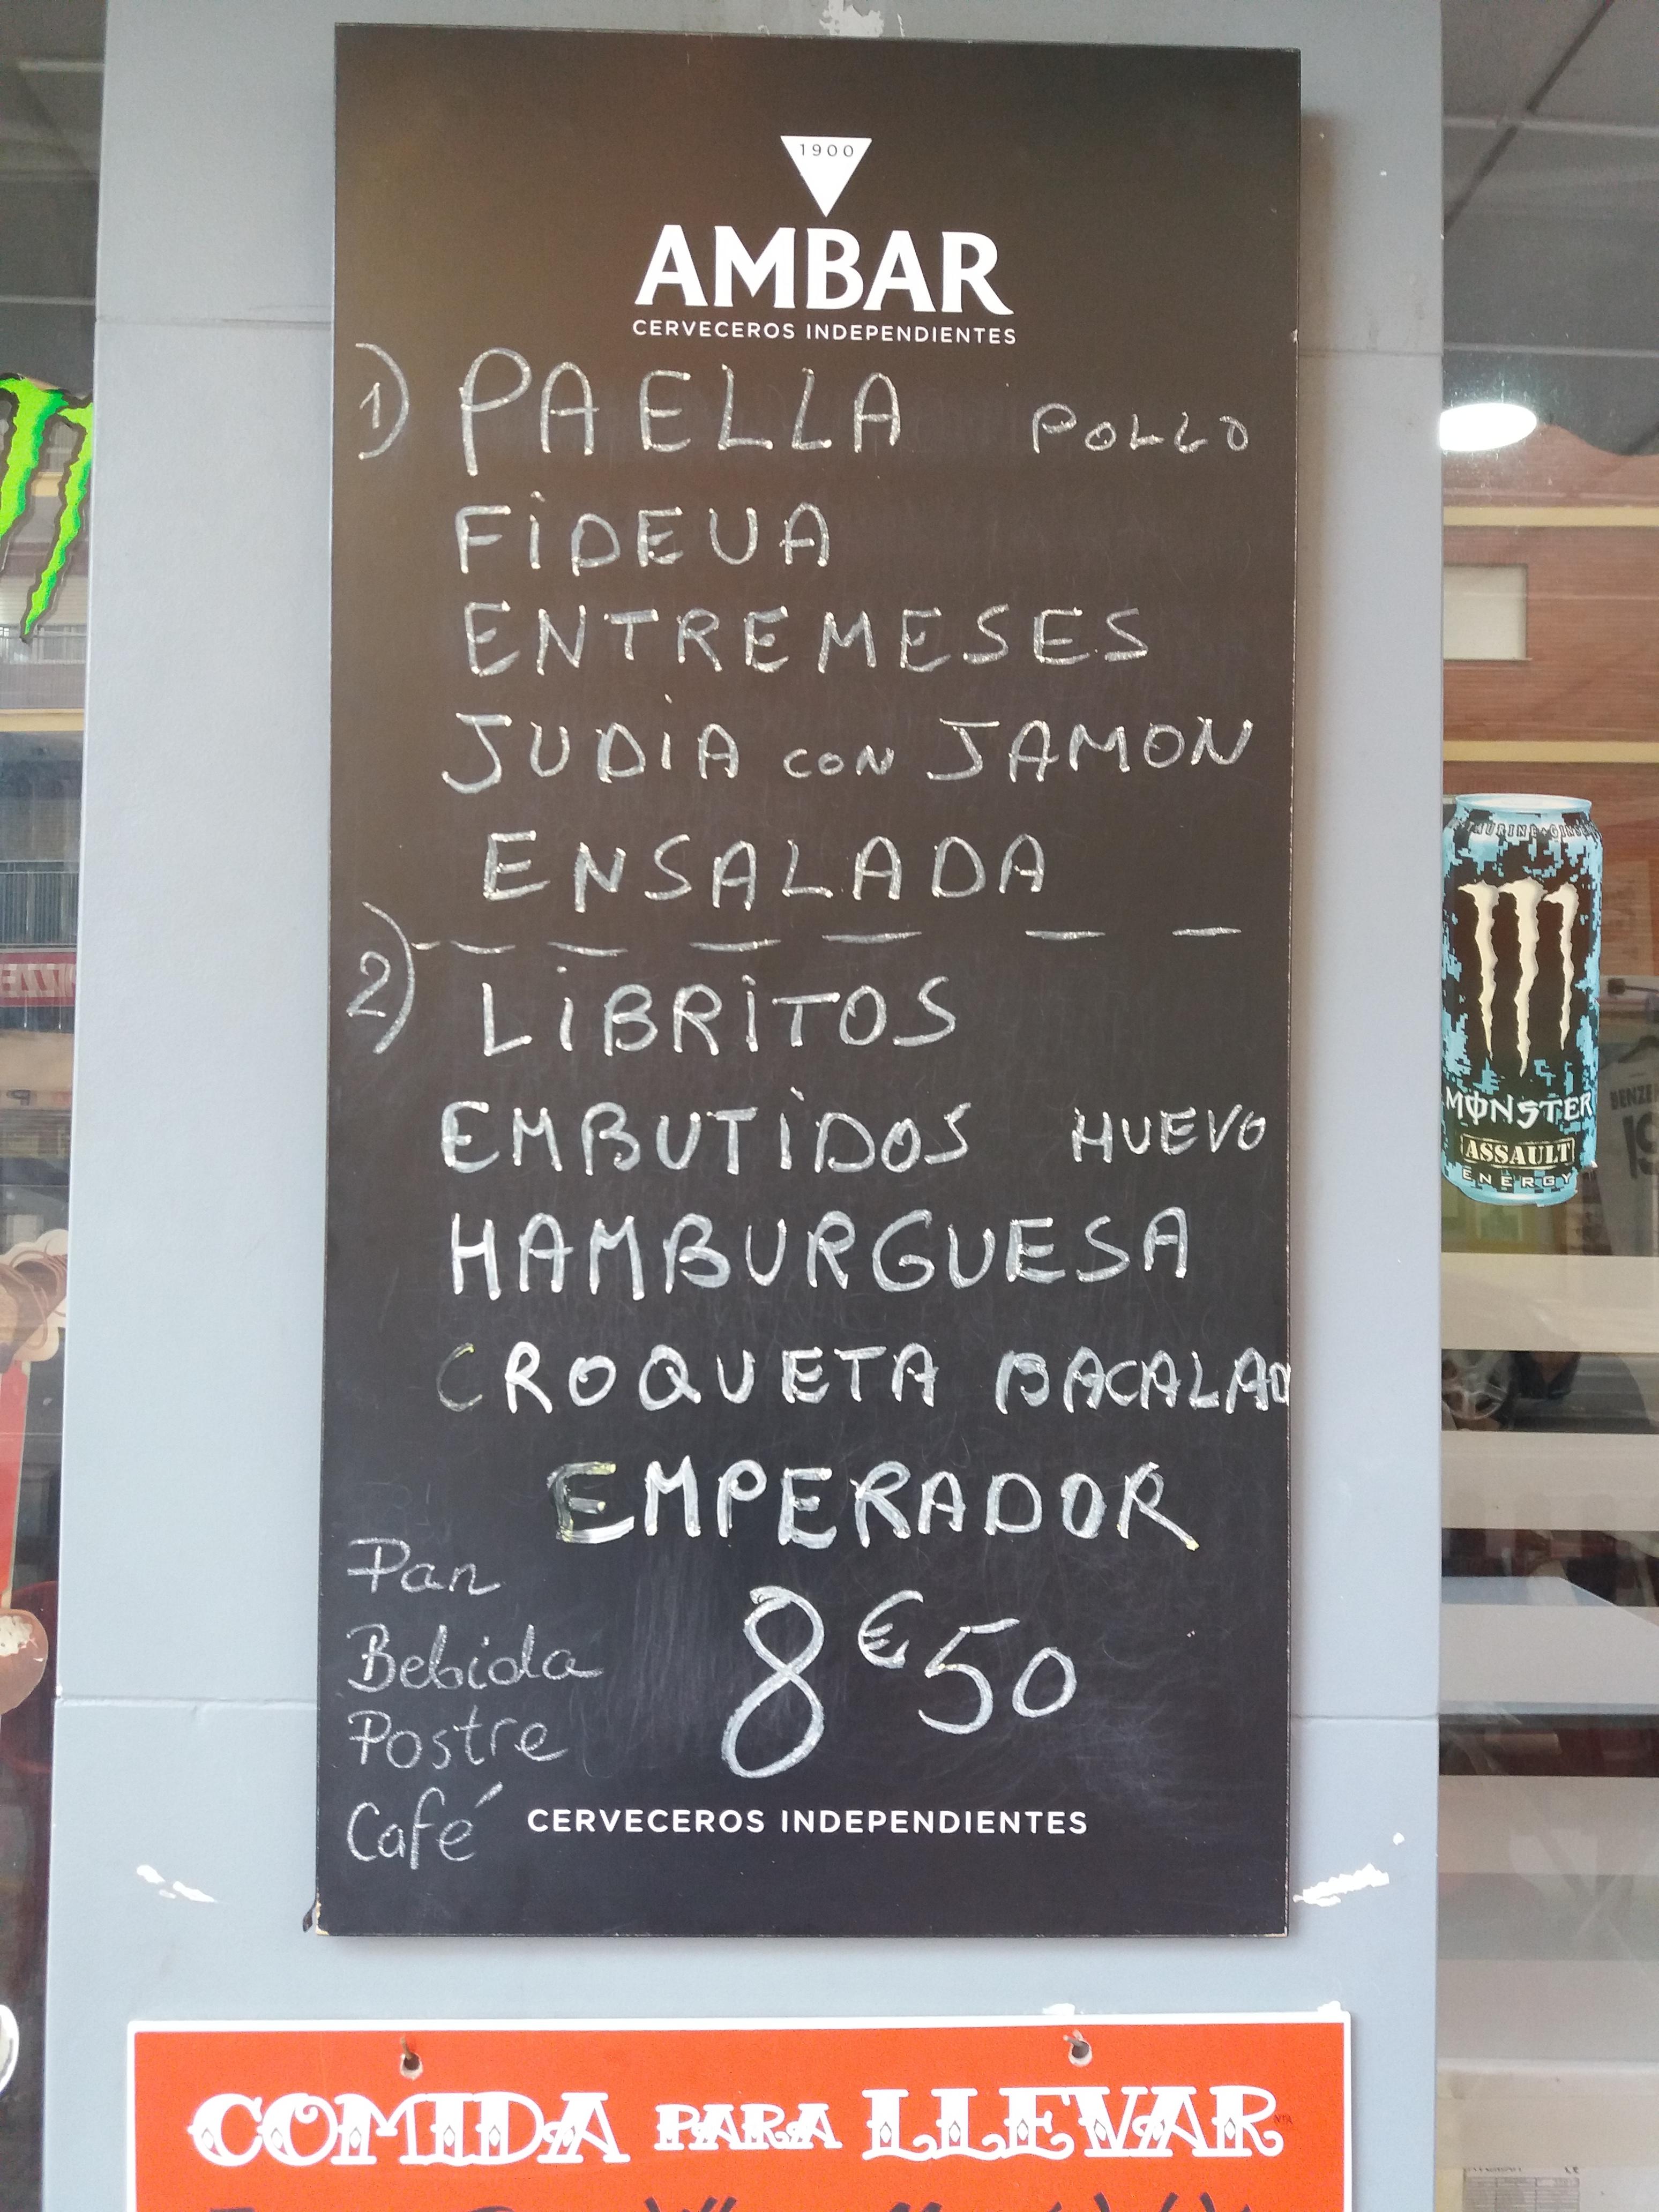 1900
AMBAR
CERVECEROS INDEPENDIENTES
1) PAELLA POLLO
FIDEUA
ENTREMESES
JUDIA CON JAMON
ENSALADA
2) LIBRITOS
EMBUTIDOS HUEVO
HAMBURGUESA
CROQUETA BACALAO
EMPERADOR
Pan
Bebida
Postre
Café
8€50
CERVECEROS INDEPENDIENTES
COMIDA PARA LLEVAR
MONSTER
ASSAULT
ENERGY